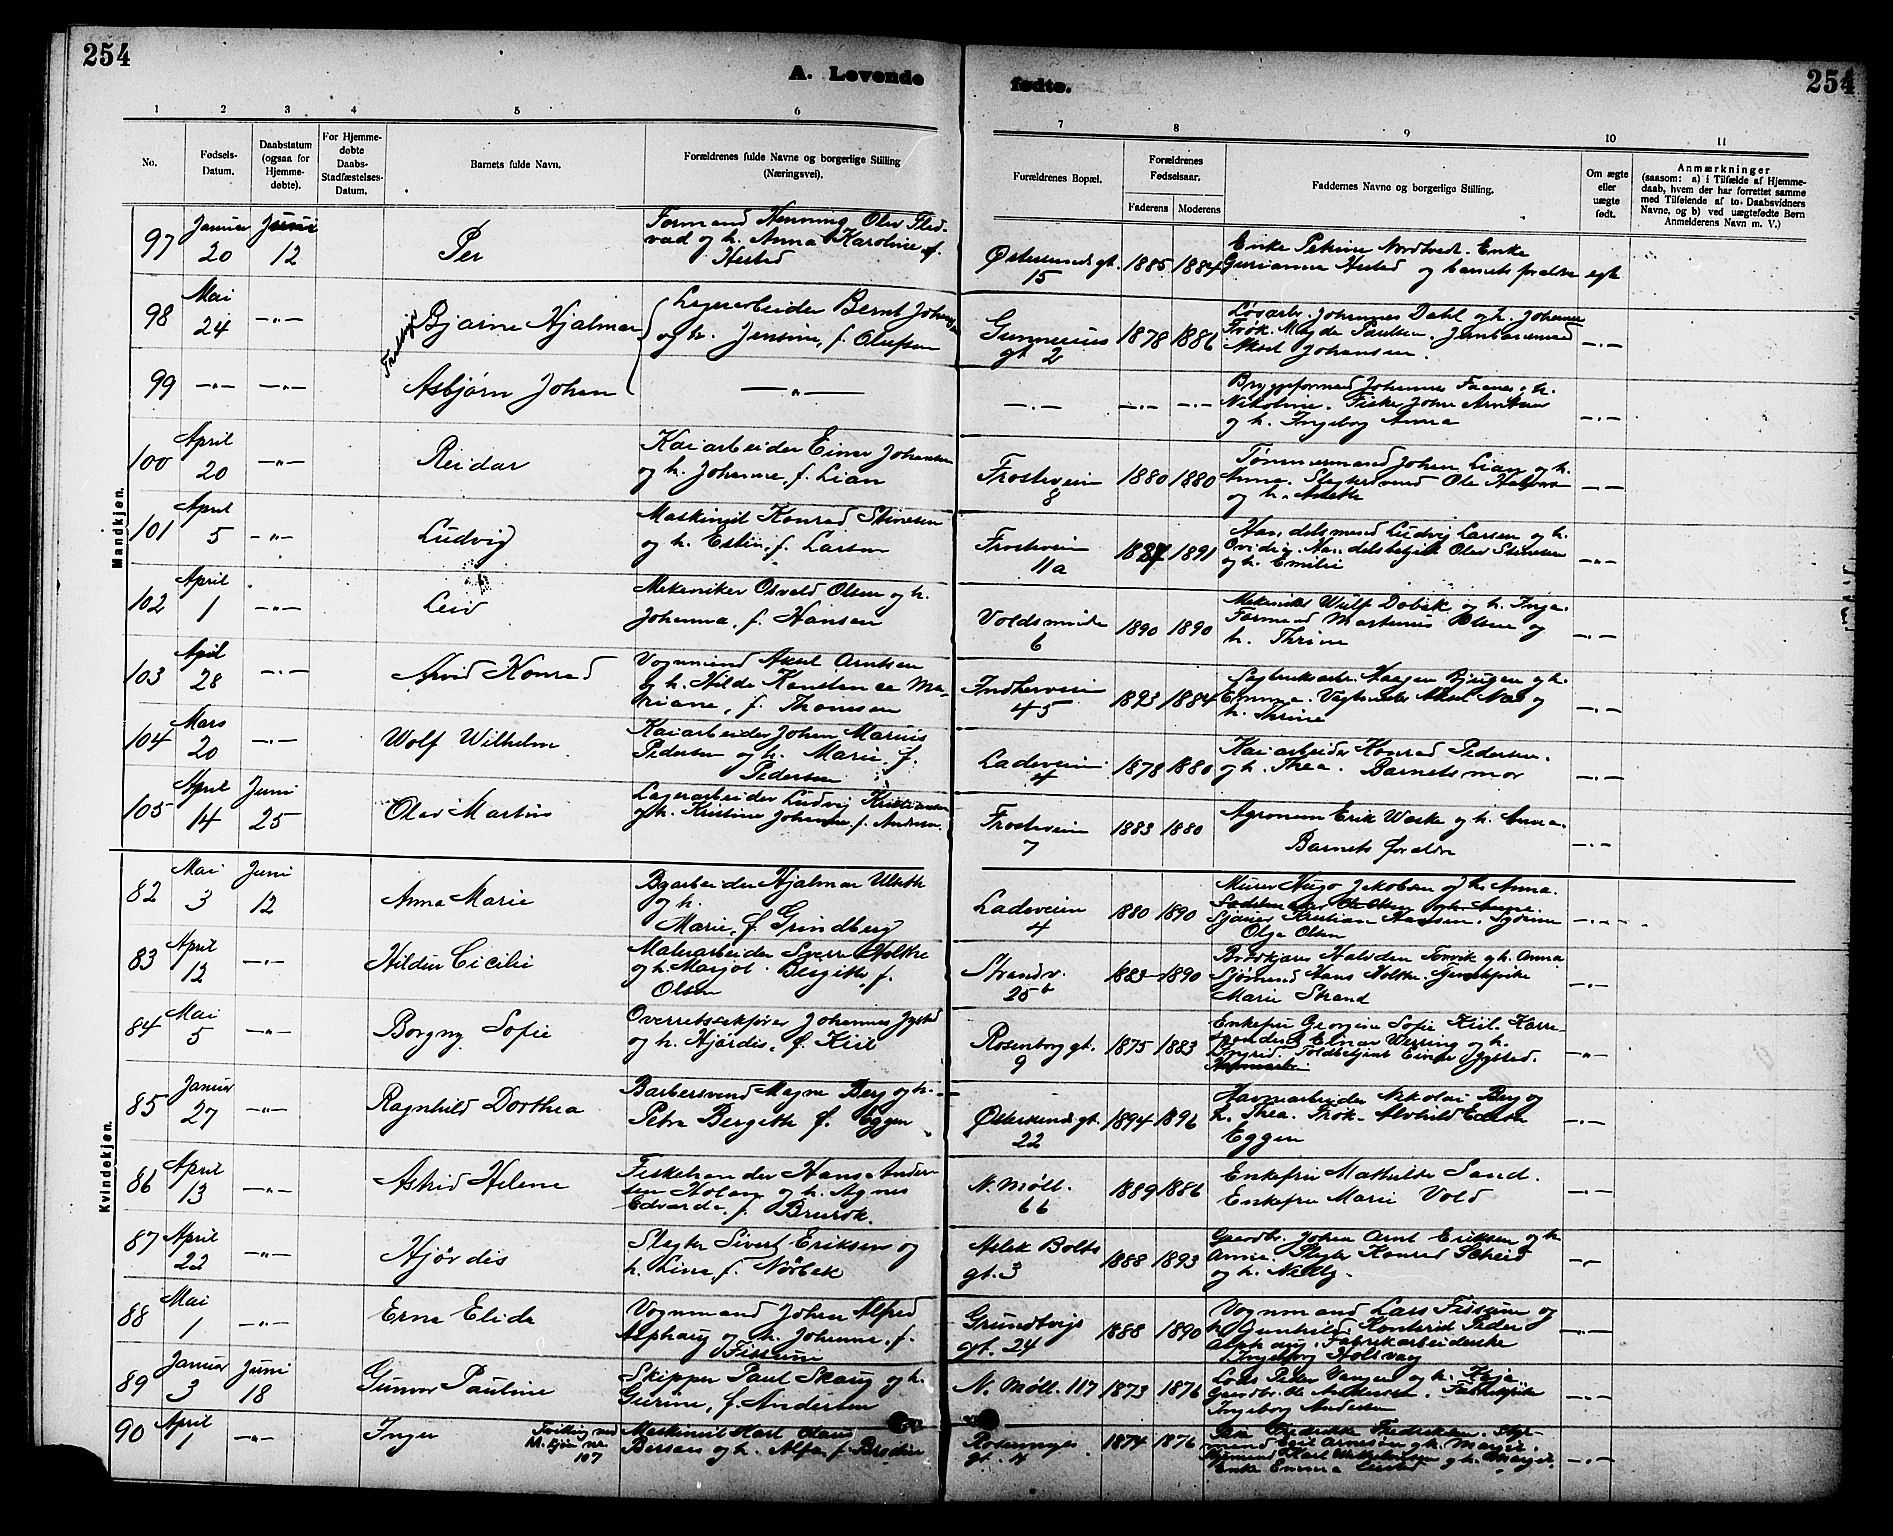 254
A. Levende
fødte.
254
1 2 3 4 5 6
7 8 9 10 11
No.
Fødsels-
Datum.
Daabstatum
(ogsaa for
Hjemme-
døbte).
For Hjemme-
døbte
Daabs-
Stadfæstelses-
Datum.
Barnets fulde Navn.
Forældrenes fulde Navne og borgerlige Stilling
(Næringsvei).
Forældrenes Bopæl.
Forældrenes
Fødselsaar.
Faderens Moderens
Faddernes Navne og borgerlige Stilling.
Om ægte
eller
uægte
født.
Anmærkninger
(saasom: a) i Tilfælde af Hjemme-
daab, hvem der har forrettet samme
med Tilføiende af to Daabsvidners
Navne, og b) ved uægtefødte Børn
Anmelderens Navn m. V.)
Mandkjøn.
97 Januar 20 Juni 12 Per
Formand Henning Olav
og h. Anna Karoline f.
Hestad
Østersundsgt. 15 1885 1884
Enke Petrine Nordtvedt. Enke
Gurianna Hestad og barnets forældre egte
98 Mai 24 -"- Bjarne Hjalmar
Lagerarbeider Bernt Johansen
og h. Jensine, f. Olufsen
Gunnerius gt 2 1878 1886
Løsarb. Johannes Dahl og h. Johanna
Frøk. Magda Paulsen. Jernbanemand
Aksel Johansen. -"-
99 -"- -"- Asbjørn Johan -"-
-"- -"- -"-
Bryggeformand Johannes Faanes og h.
Nikoline. Fisker Johan Arntsen
og h. Ingeborg Anna -"-
100 April 20 -"- Reidar
Kaiarbeider Einar Johansen
og h. Johanne, f. Lian
Frostaveien 8 1880 1880
Tømmermand Johan Lian og h.
Anna. Slagtersvend Ole
og h. -"-
101 April 5 -"- Ludvig
Maskinist Konrad Stinesen
og h. Estin, f. Larsen
Frostaveien 11a 1887 1891
Handelsmand Ludvig Larsen og h.
Ovidia. Handelsbetjent Olav Stinesen
og h. Emilie -"-
102 April 1 -"- Leiv
Mekaniker Osvald Olsen og h.
Johanna, f. Hansen
Voldsminde 6 1890 1890
Mekaniker Wulf Dobak og h. Inga.
Formand Martinus Olsen og
h. Thrine -"-
103 April 28 -"- Arvid Konrad
Vognmand Aksel Arntsen
og h. Hilda Konstance Ma-
riane, f. Thonesen
Indherveien 45 1893 1884
Haagen Bjugan og h.
Emma. Aksel Næs og
h. Thrine -"-
104 Mars 20 -"- Wolf Wilhelm
Kaiarbeider Johan Marius
Pedersen og h. Marie, f.
Pedersen
Ladeveien 4 1878 1880
Kaiarbeider Konrad Pedersen.
og h. Thea. Barnets mor -"-
105 April 14 Juni 25 Olav Martin
Lagerarbeider Ludvig Kristiansen
og h. Kristine Johanne, f. Andersen.
Frostaveien 7 1883 1880
Agronom Erik Waske og h. Anna.
Barnets forældre -"-
Kvindekjøn.
82 Mai 3 Juni 12 Anna Marie
Byarbeider Hjalmar Ulseth
og h.
Marie, f. Grindberg
Ladeveien 4 1880 1890
Murer Hugo Jakobsen og h. Anna.
Sjauer Kristian Hansen. Syerske
Olga Olsen -"-
83 April 12 -"- Hildur Cicilie
Malerarbeider Sverre Holthe
og h. Margot Bergitte, f.
Olsen
Strandv. 25b 1883 1890
Halvdan Tonvik og h. Anna
Sjømand Hans Holthe.
Marie Strand -"-
84 Mai 5 -"- Borgny Sofie
Overretssakfører Johannes Jystad
og h. Hjørdis, f. Kiil
Rosenborg gt. 9 1875 1883
Enkefru Georgine Sofie Kiil. Korre-
spondent Einar Werring og h.
Ingrid. Toldbetjent Einar Jystad. -"-
85 Januar 27 -"- Ragnhild Dorthea
Barbersvend Magne Berg og h.
Petra Bergitte f. Eggen
Østersundsgt. 22 1894 1896
Havnearbeider Nikolai Berg og
h. Thea. Frøk. Alvhild
Eggen -"-
86 April 13 -"- Astrid Helene
Fiskehandler Hans Ander-
sen Holan og h. Agnes
Edvarda, f. Brurok.
N. Møll. 66 1889 1886
Enkefru Mathilde Sand.
Enkefru Marie Vold -"-
87 April 22 -"- Hjørdis
Slagter Sivert Eriksen og
h. Lina, f. Norbek
Aslak Bolts gt. 3 1888 1893
Gaardbr. Johan Arnt Eriksen og h.
Anna. Slagter Konrad
og h. Nelly. -"-
88 Mai 1 -"- Erna Elida
Vognmand Johan Alfred
Alphaug og h. Johanna, f.
Fissum
Grundtvigs gt. 24 1888 1890
Vognmand Lars Fissum og
h. Gunhild. Peder
Alphaug. Fabrikarbeiderske
Ingeborg Holsvaag -"-
89 Januar 3 Juni 18 Gunvor Pauline
Skipper Paul Skaug og h.
Gurine, f. Andersen
N. Møll. 117 1873 1876
Lods Peter Vangen og h. Kaja.
Gaardbr. Ole Andersen.
Ingeborg Andersen -"-
90 April 1 -"- Inger
Tvilling med
M. kjøn no
107
Maskinist Karl Olaus
Bersaas og h. Alfa, f.
gt. 4 1874 1876
Fredrik Fredriksen.
Sjømand Karl og h.
Enke Emma -"-